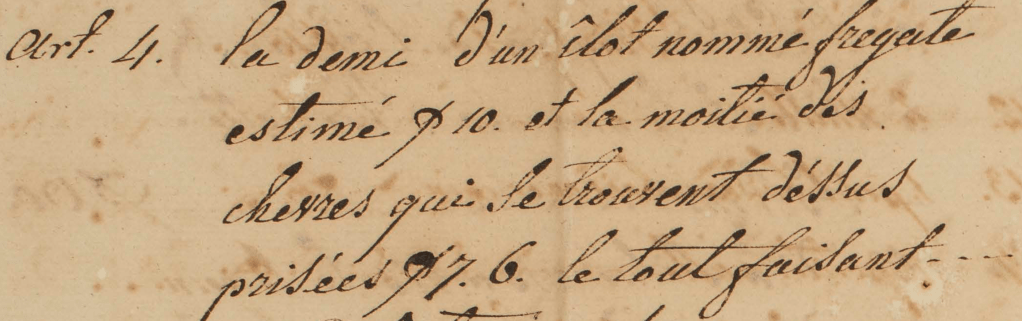 Art. 4. la demi d'un îlot nommé fregate
estimé $ 10. et la moitié des
chevres qui se trouvent déssus
prisées $ 7. 6. le tout faisant - - -